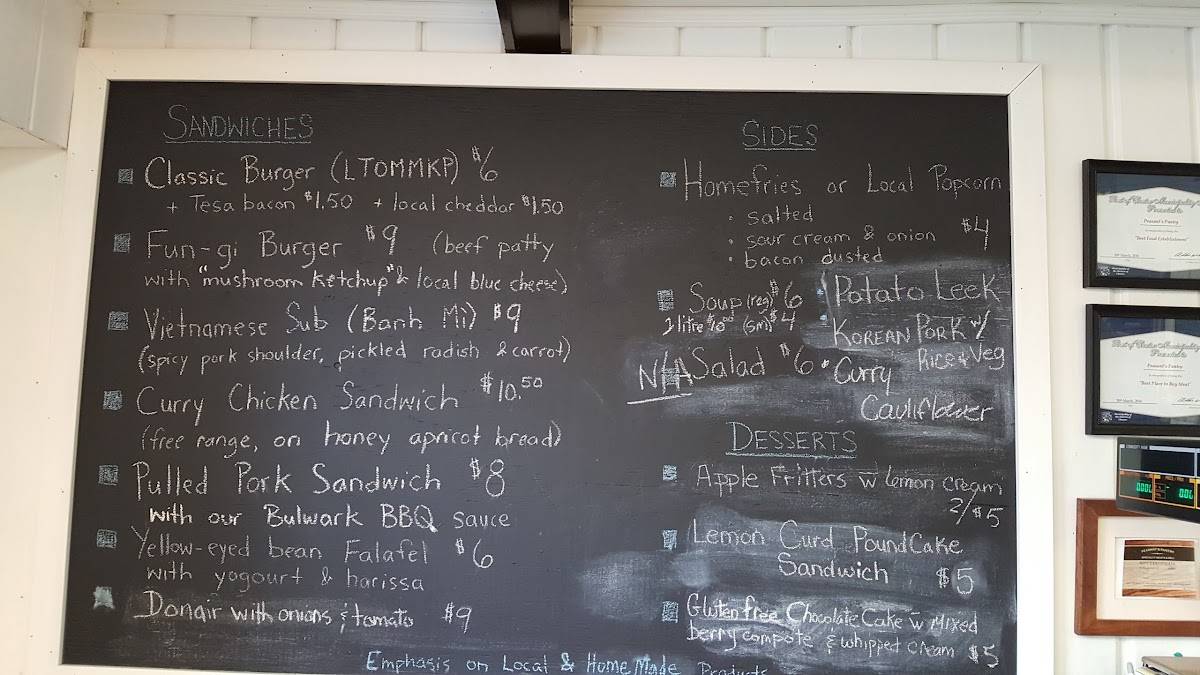 SANDWICHES
Classic Burger (LTOMMKP) $6
+ Tesa bacon $1.50 + local cheddar $1.50
Fun-gi Burger $9 (beef patty
with "mushroom ketchup" & local blue cheese)
Vietnamese Sub (Banh Mi) $9
(spicy pork shoulder, pickled radish & carrot)
Curry Chicken Sandwich $10.50
(free range, on honey apricot bread)
Pulled Pork Sandwich $8
with our Bulwark BBQ sauce
Yellow-eyed bean Falafel $6
with yogourt & harissa
Donair with onions & tomato $9
SIDES
Homefries or Local Popcorn
• salted
• sour cream & onion $4
• bacon dusted
Soup (reg) $6
1 litre $10 (sm) $4
• Potato Leek
KOREAN PORK w/
Rice & Veg
N/A Salad $6
• Curry
Cauliflower
DESSERTS
Apple Fritters w lemon cream
2/$5
Lemon Curd Pound Cake
Sandwich $5
Gluten free Chocolate Cake w Mixed
berry compote & whipped cream $5
Emphasis on Local & Home Made Products
Peasant's Pantry
"Best Food Establishment"
Peasant's Pantry
"Best Place to Buy Meat"